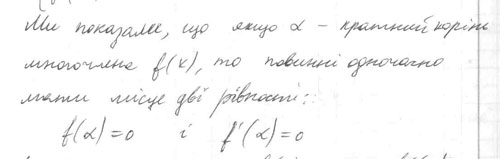 Ми показали, що якщо α – кратний корінь
многочлена f(x), то повинні одночасно
мати місце дві рівності:
f(α)=0 і f'(α)=0